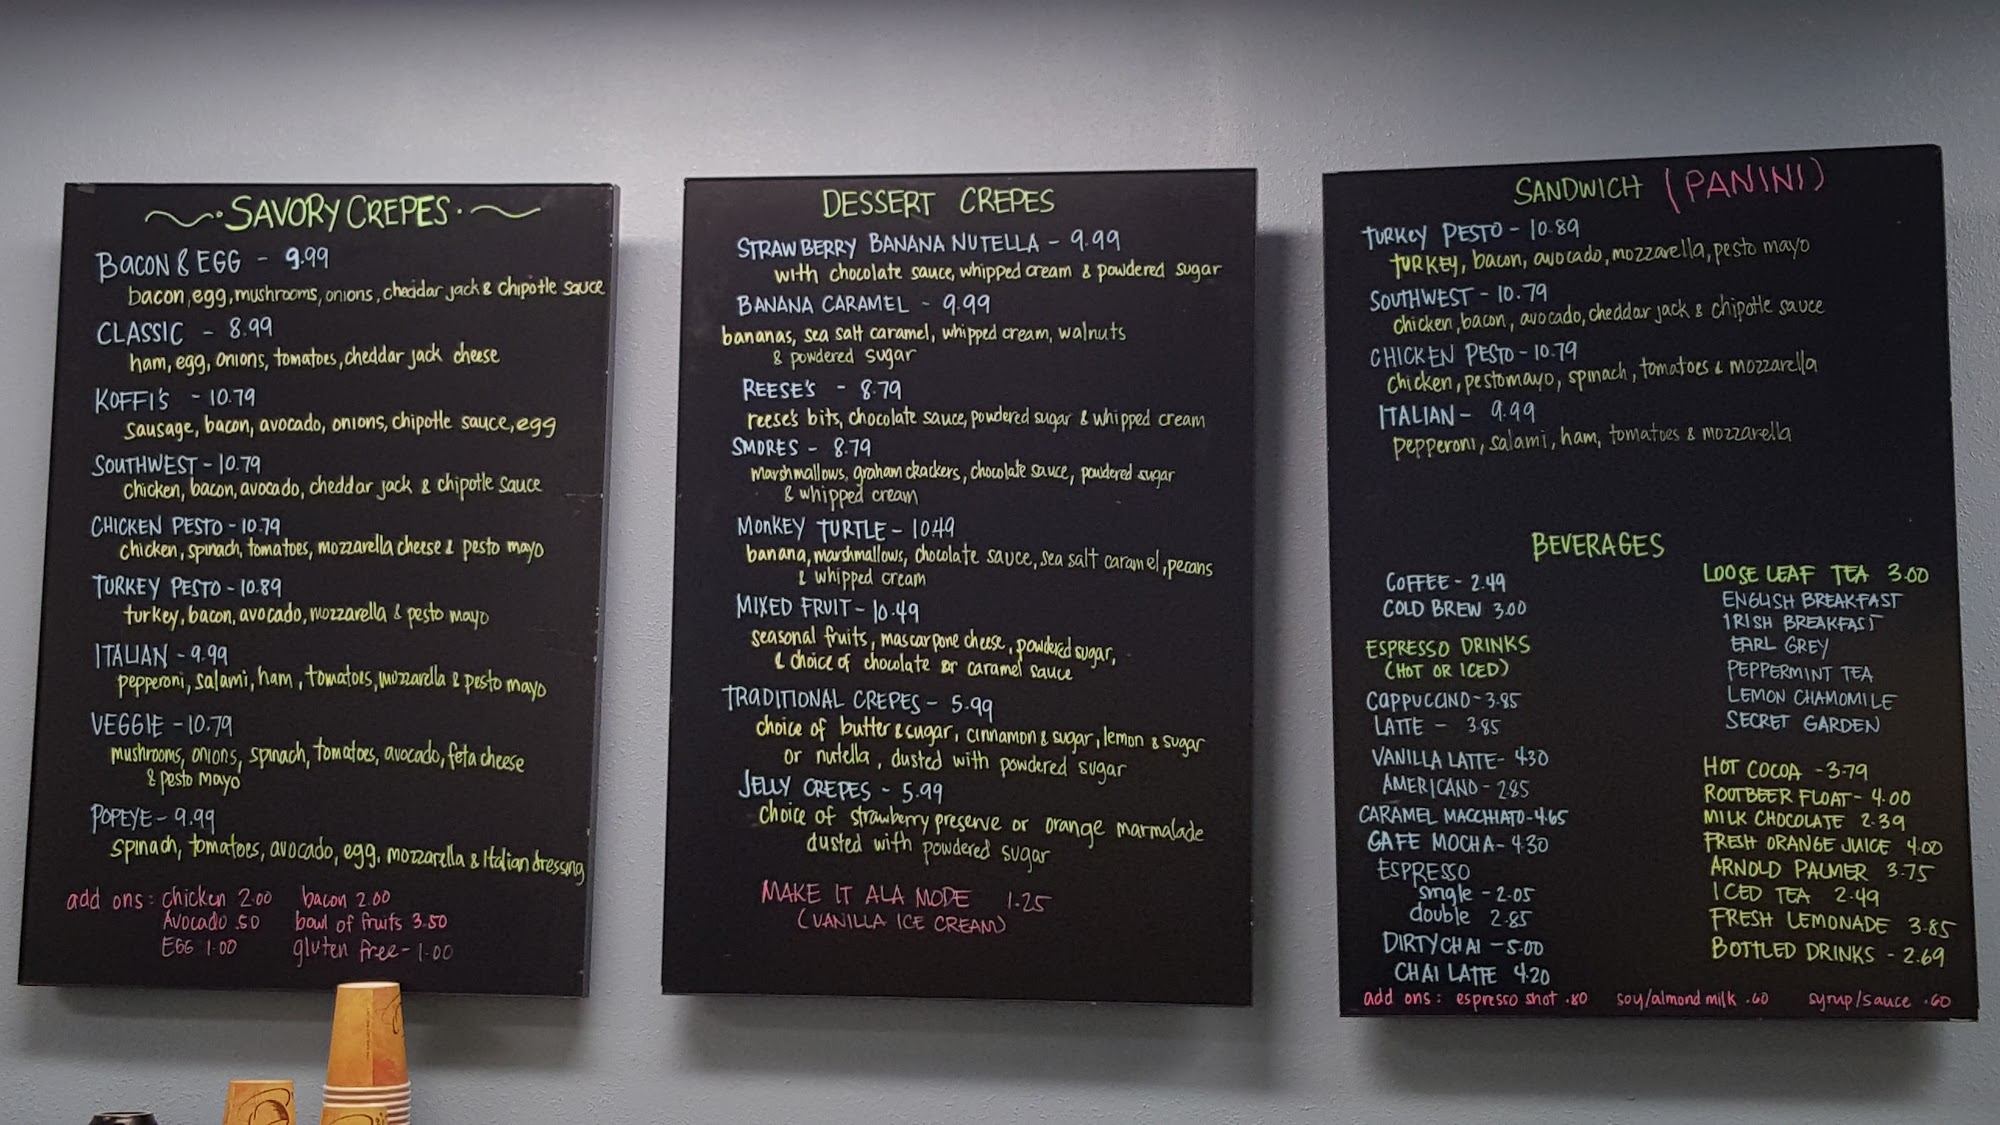 SAVORY CREPES
BACON & EGG - 9.99
bacon, egg, mushrooms, onions, cheddar jack & chipotle sauce
CLASSIC - 8.99
ham, egg, onions, tomatoes, cheddar jack cheese
KOFFI'S - 10.79
sausage, bacon, avocado, onions, chipotle sauce, egg
SOUTHWEST - 10.79
chicken, bacon, avocado, cheddar jack & chipotle sauce
CHICKEN PESTO - 10.79
chicken, spinach, tomatoes, mozzarella cheese & pesto mayo
TURKEY PESTO - 10.89
turkey, bacon, avocado, mozzarella & pesto mayo
ITALIAN - 9.99
pepperoni, salami, ham, tomatoes, mozzarella & pesto mayo
VEGGIE - 10.79
mushrooms, onions, spinach, tomatoes, avocado, feta cheese
& pesto mayo
POPEYE - 9.99
spinach, tomatoes, avocado, egg, mozzarella & Italian dressing
add ons: chicken 2.00 bacon 2.00
Avocado .50 bowl of fruits 3.50
EGG 1.00 gluten free - 1.00
DESSERT CREPES
STRAWBERRY BANANA NUTELLA - 9.99
with chocolate sauce, whipped cream & powdered sugar
BANANA CARAMEL - 9.99
bananas, sea salt caramel, whipped cream, walnuts
& powdered sugar
REESE'S - 8.79
reese's bits, chocolate sauce, powdered sugar & whipped cream
SMORES - 8.79
marshmallows, graham crackers, chocolate sauce, powdered sugar
& whipped cream
MONKEY TURTLE - 10.49
banana, marshmallows, chocolate sauce, sea salt caramel, pecans
& whipped cream
MIXED FRUIT - 10.49
seasonal fruits, mascarpone cheese, powdered sugar,
& choice of chocolate or caramel sauce
TRADITIONAL CREPES - 5.99
choice of butter & sugar, cinnamon & sugar, lemon & sugar
or nutella, dusted with powdered sugar
JELLY CREPES - 5.99
choice of strawberry preserve or orange marmalade
dusted with powdered sugar
MAKE IT ALA MODE 1.25
(VANILLA ICE CREAM)
SANDWICH (PANINI)
TURKEY PESTO - 10.89
TURKEY, bacon, avocado, mozzarella, pesto mayo
SOUTHWEST - 10.79
chicken, bacon, avocado, cheddar jack & chipotle sauce
CHICKEN PESTO - 10.79
chicken, pesto mayo, spinach, tomatoes & mozzarella
ITALIAN - 9.99
pepperoni, salami, ham, tomatoes & mozzarella
BEVERAGES
COFFEE - 2.49
COLD BREW 3.00
ESPRESSO DRINKS
(HOT OR ICED)
CAPPUCCINO - 3.85
LATTE - 3.85
VANILLA LATTE - 4.30
AMERICANO - 2.85
CARAMEL MACCHIATO - 4.65
CAFE MOCHA - 4.30
ESPRESSO
single - 2.05
double 2.85
DIRTY CHAI - 5.00
CHAI LATTE 4.20
LOOSE LEAF TEA 3.00
ENGLISH BREAKFAST
IRISH BREAKFAST
EARL GREY
PEPPERMINT TEA
LEMON CHAMOMILE
SECRET GARDEN
HOT COCOA - 3.79
ROOTBEER FLOAT - 4.00
MILK CHOCOLATE 2.39
FRESH ORANGE JUICE 4.00
ARNOLD PALMER 3.75
ICED TEA 2.49
FRESH LEMONADE 3.85
BOTTLED DRINKS - 2.69
add ons: espresso shot .80 soy/almond milk .60 syrup/sauce .60